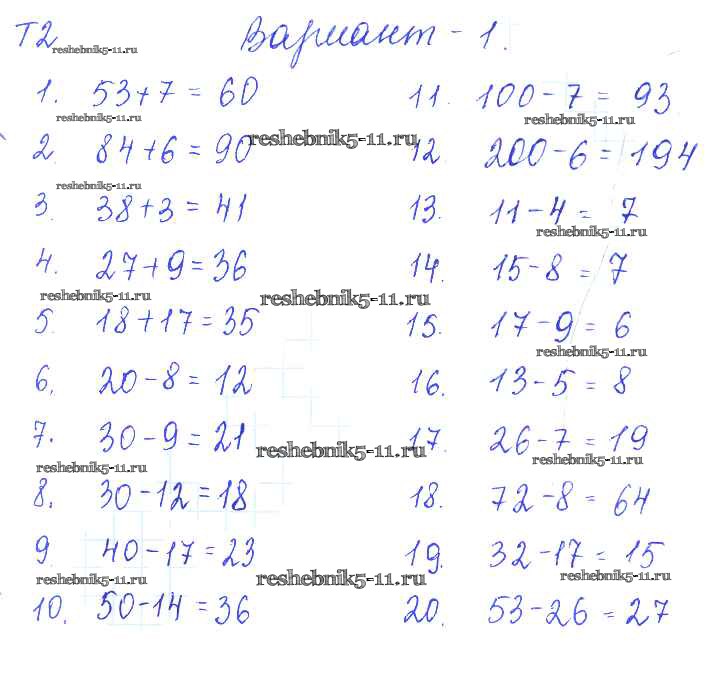 Т2 Вариант - 1.
reshebnik5-11.ru
1. 53+7 = 60
reshebnik5-11.ru
2. 84+6 = 90
reshebnik5-11.ru
reshebnik5-11.ru
3. 38+3 = 41
4. 27+9 = 36
reshebnik5-11.ru
reshebnik5-11.ru
5. 18+17 = 35
6. 20-8 = 12
7. 30-9 = 21
reshebnik5-11.ru
reshebnik5-11.ru
8. 30-12 = 18
9. 40-17 = 23
reshebnik5-11.ru
reshebnik5-11.ru
10. 50-14 = 36
11. 100-7 = 93
reshebnik5-11.ru
12 200-6 = 194
13. 11-4 = 7
reshebnik5-11.ru
14. 15-8 = 7
15. 17-9 = 6
reshebnik5-11.ru
16. 13-5 = 8
17. 26-7 = 19
reshebnik5-11.ru
18. 72-8 = 64
19. 32-17 = 15
reshebnik5-11.ru
20. 53-26 = 27